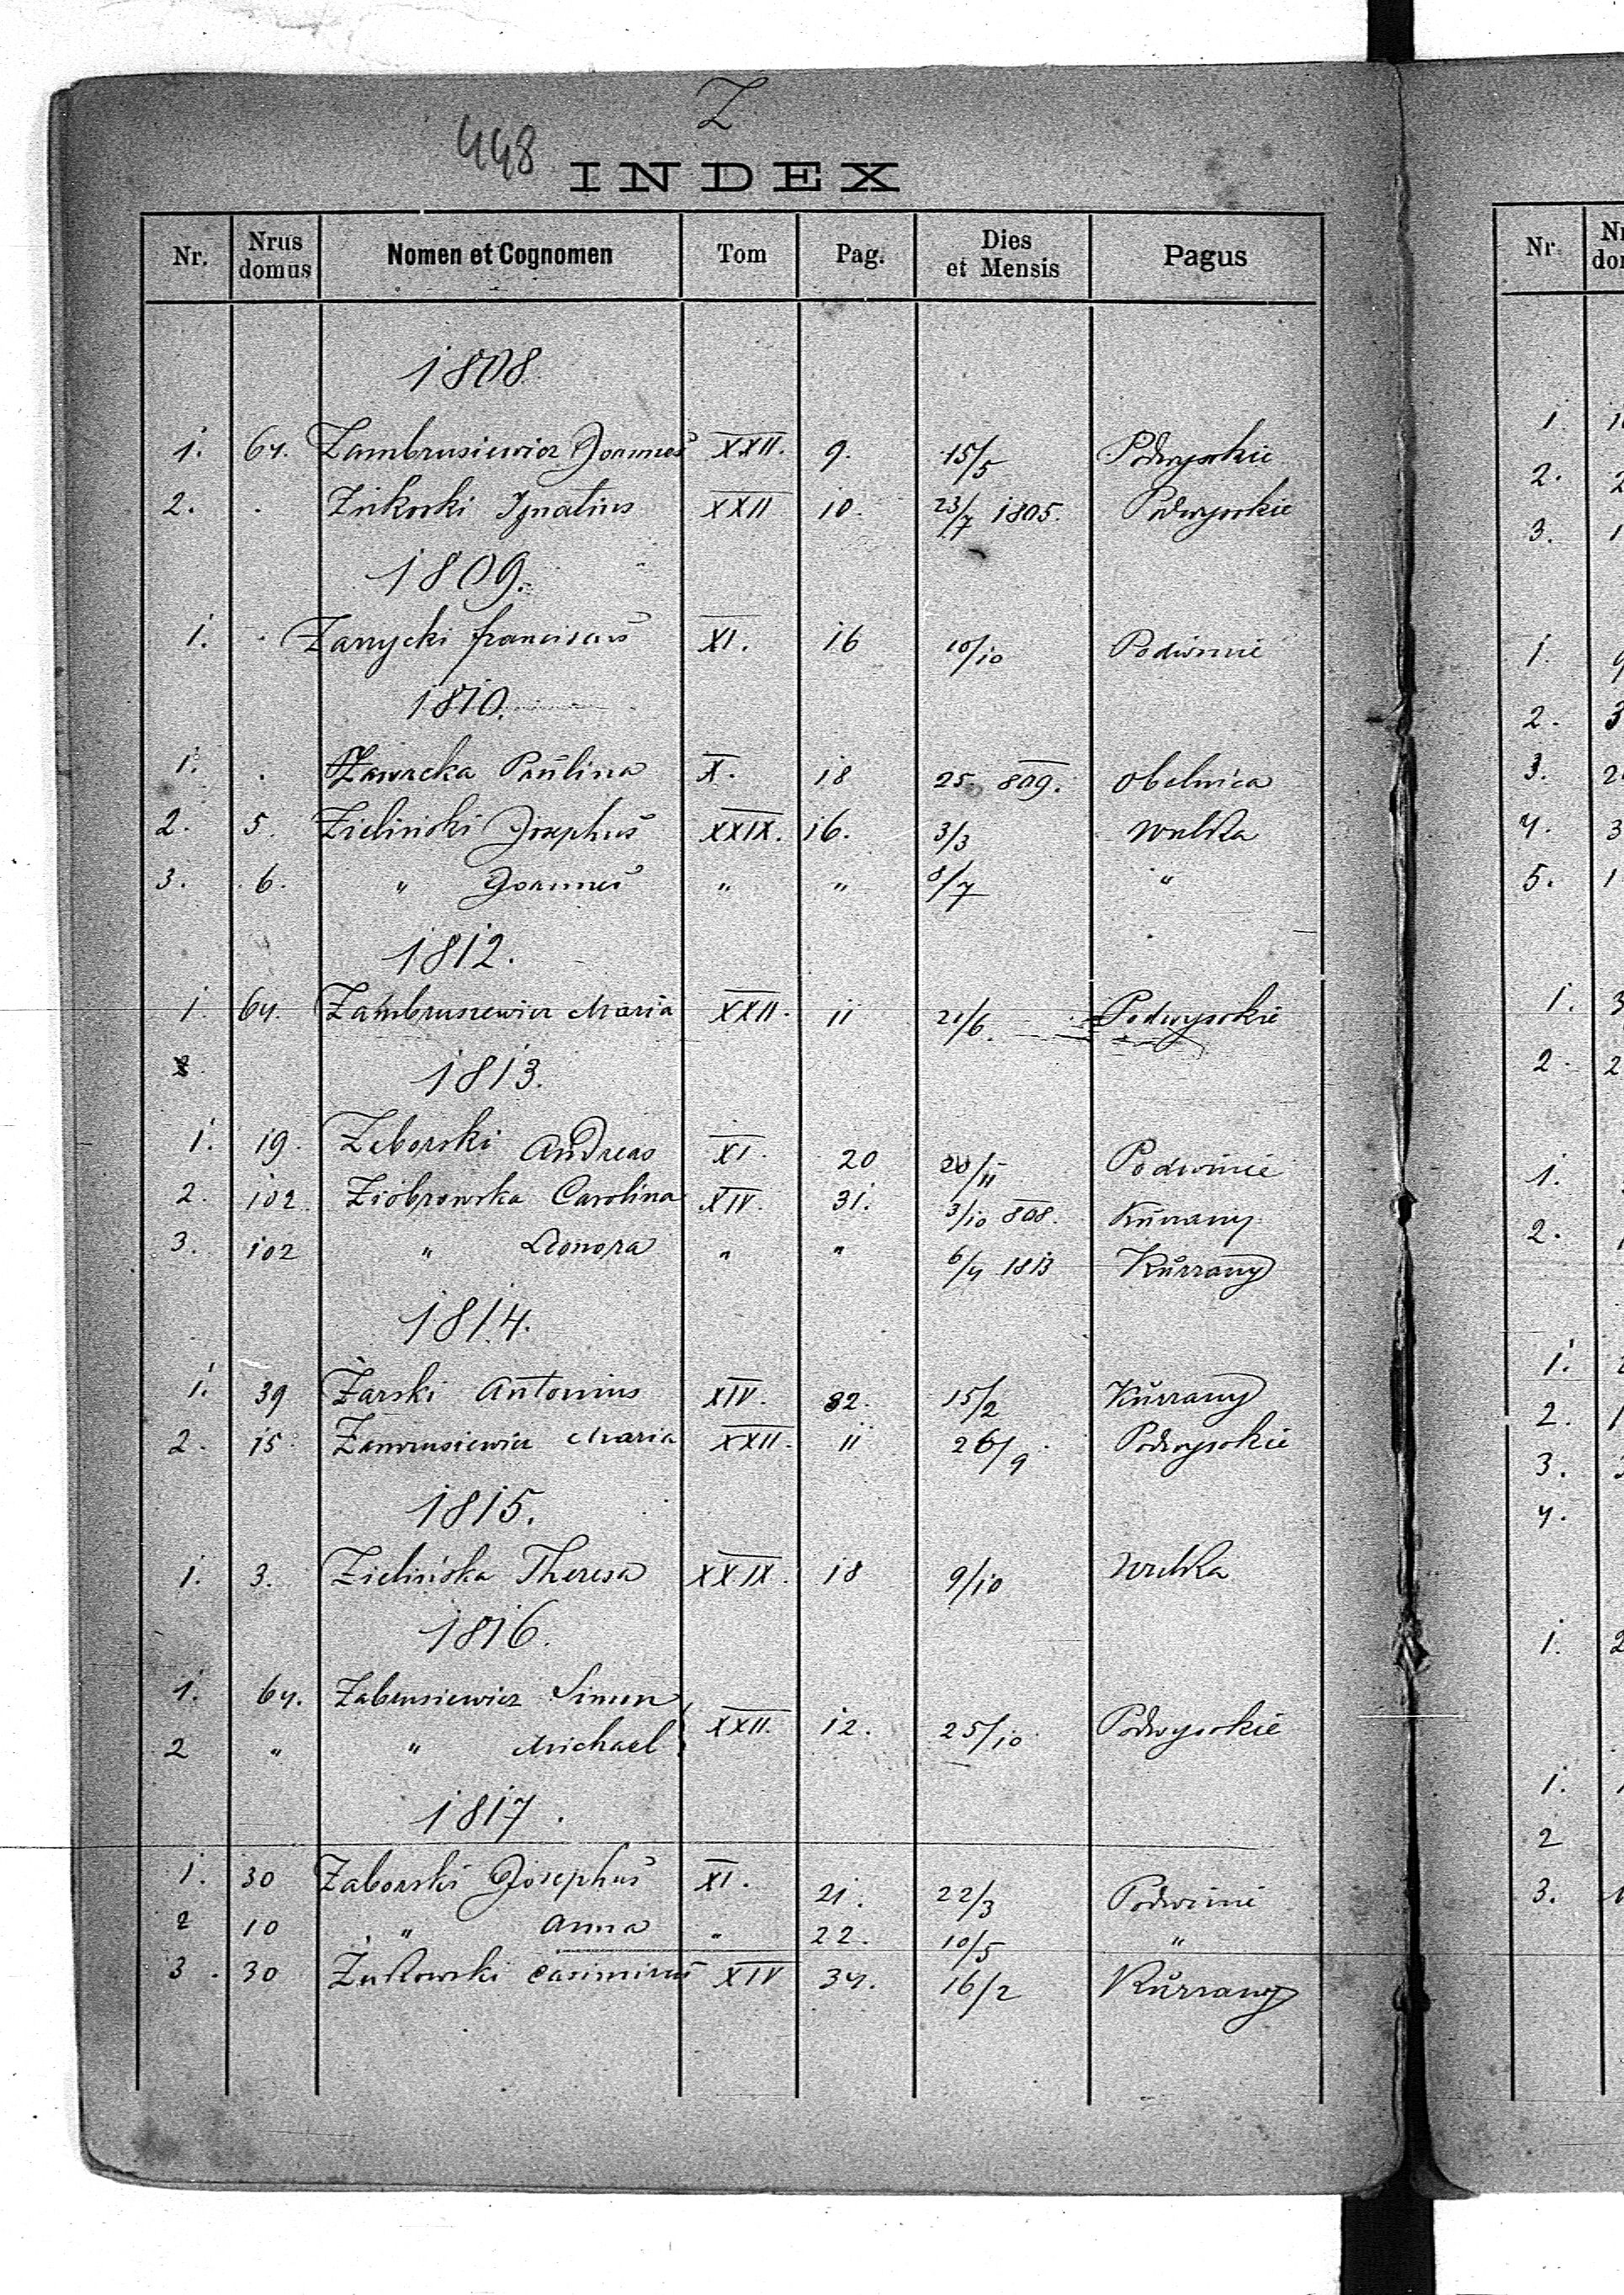 Z
448
INDEX
Nr. Nrus domus Nomen et Cognomen Tom Pag. Dies et Mensis Pagus
1808
1. 64. Zambrusiewicz Joannes XXII. 9. 15/5 Podwysokie
2. . Ignatius XXII 10. 23/7 1805. Podwysokie
1809.
1. . Zarzycki franciscus XI. 16 10/10 Podwinie
1810.
1. . Zawacka Paulina X. 18 25 809. Obelnica
2. 5. Zieliński Josephus XXIX. 16. 3/3 Wulka
3. 6. " Joannes " " 8/7 "
1812.
1. 64. Zambruszewicz Maria XXII. 11 21/6. Podwysokie
1813.
1. 19. Zeborski Andreas XI. 20 20/11 Podwinie
2. 102 Ziobrowska Carolina XIV. 31. 3/10 808. Kurzany
3. 102 " Leonora " " 6/4 1813 Kurzany
1814.
1. 39 Żarski Antonius XIV. 32. 15/2 Kurzany
2. 15 Zamrusiewicz Maria XXII. 11 26/9. Podwysokie
1815.
1. 3. Zielińska Theresa XXIX. 18 9/10 Wulka
1816.
1. 64. Zabrusiewicz Simon XXII. 12. 25/10 Podwysokie
2 " " Michael
1817.
1. 30 Zaborski Josephus XI. 21. 22/3 Podwinie
2 10 " Anna " 22. 10/5 "
3. 30 Żukowski Casimirus XIV 34. 16/2 Kurzany
Nr.